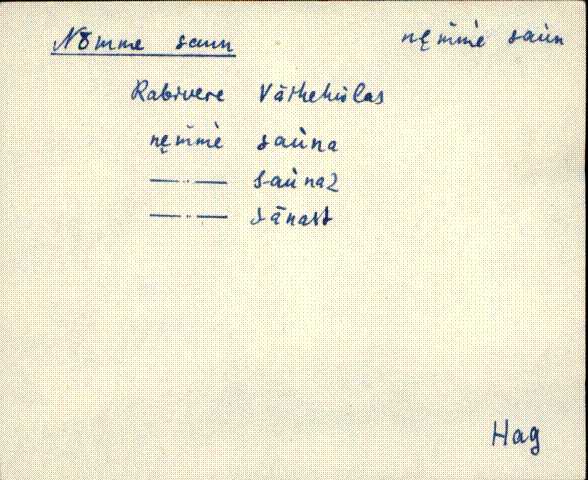 Nõmme saun nęm̆mè saùn
Rabivere Vätkekülas
nęm̆mè saùna
—··— saùna2
—··— sānast
Hag